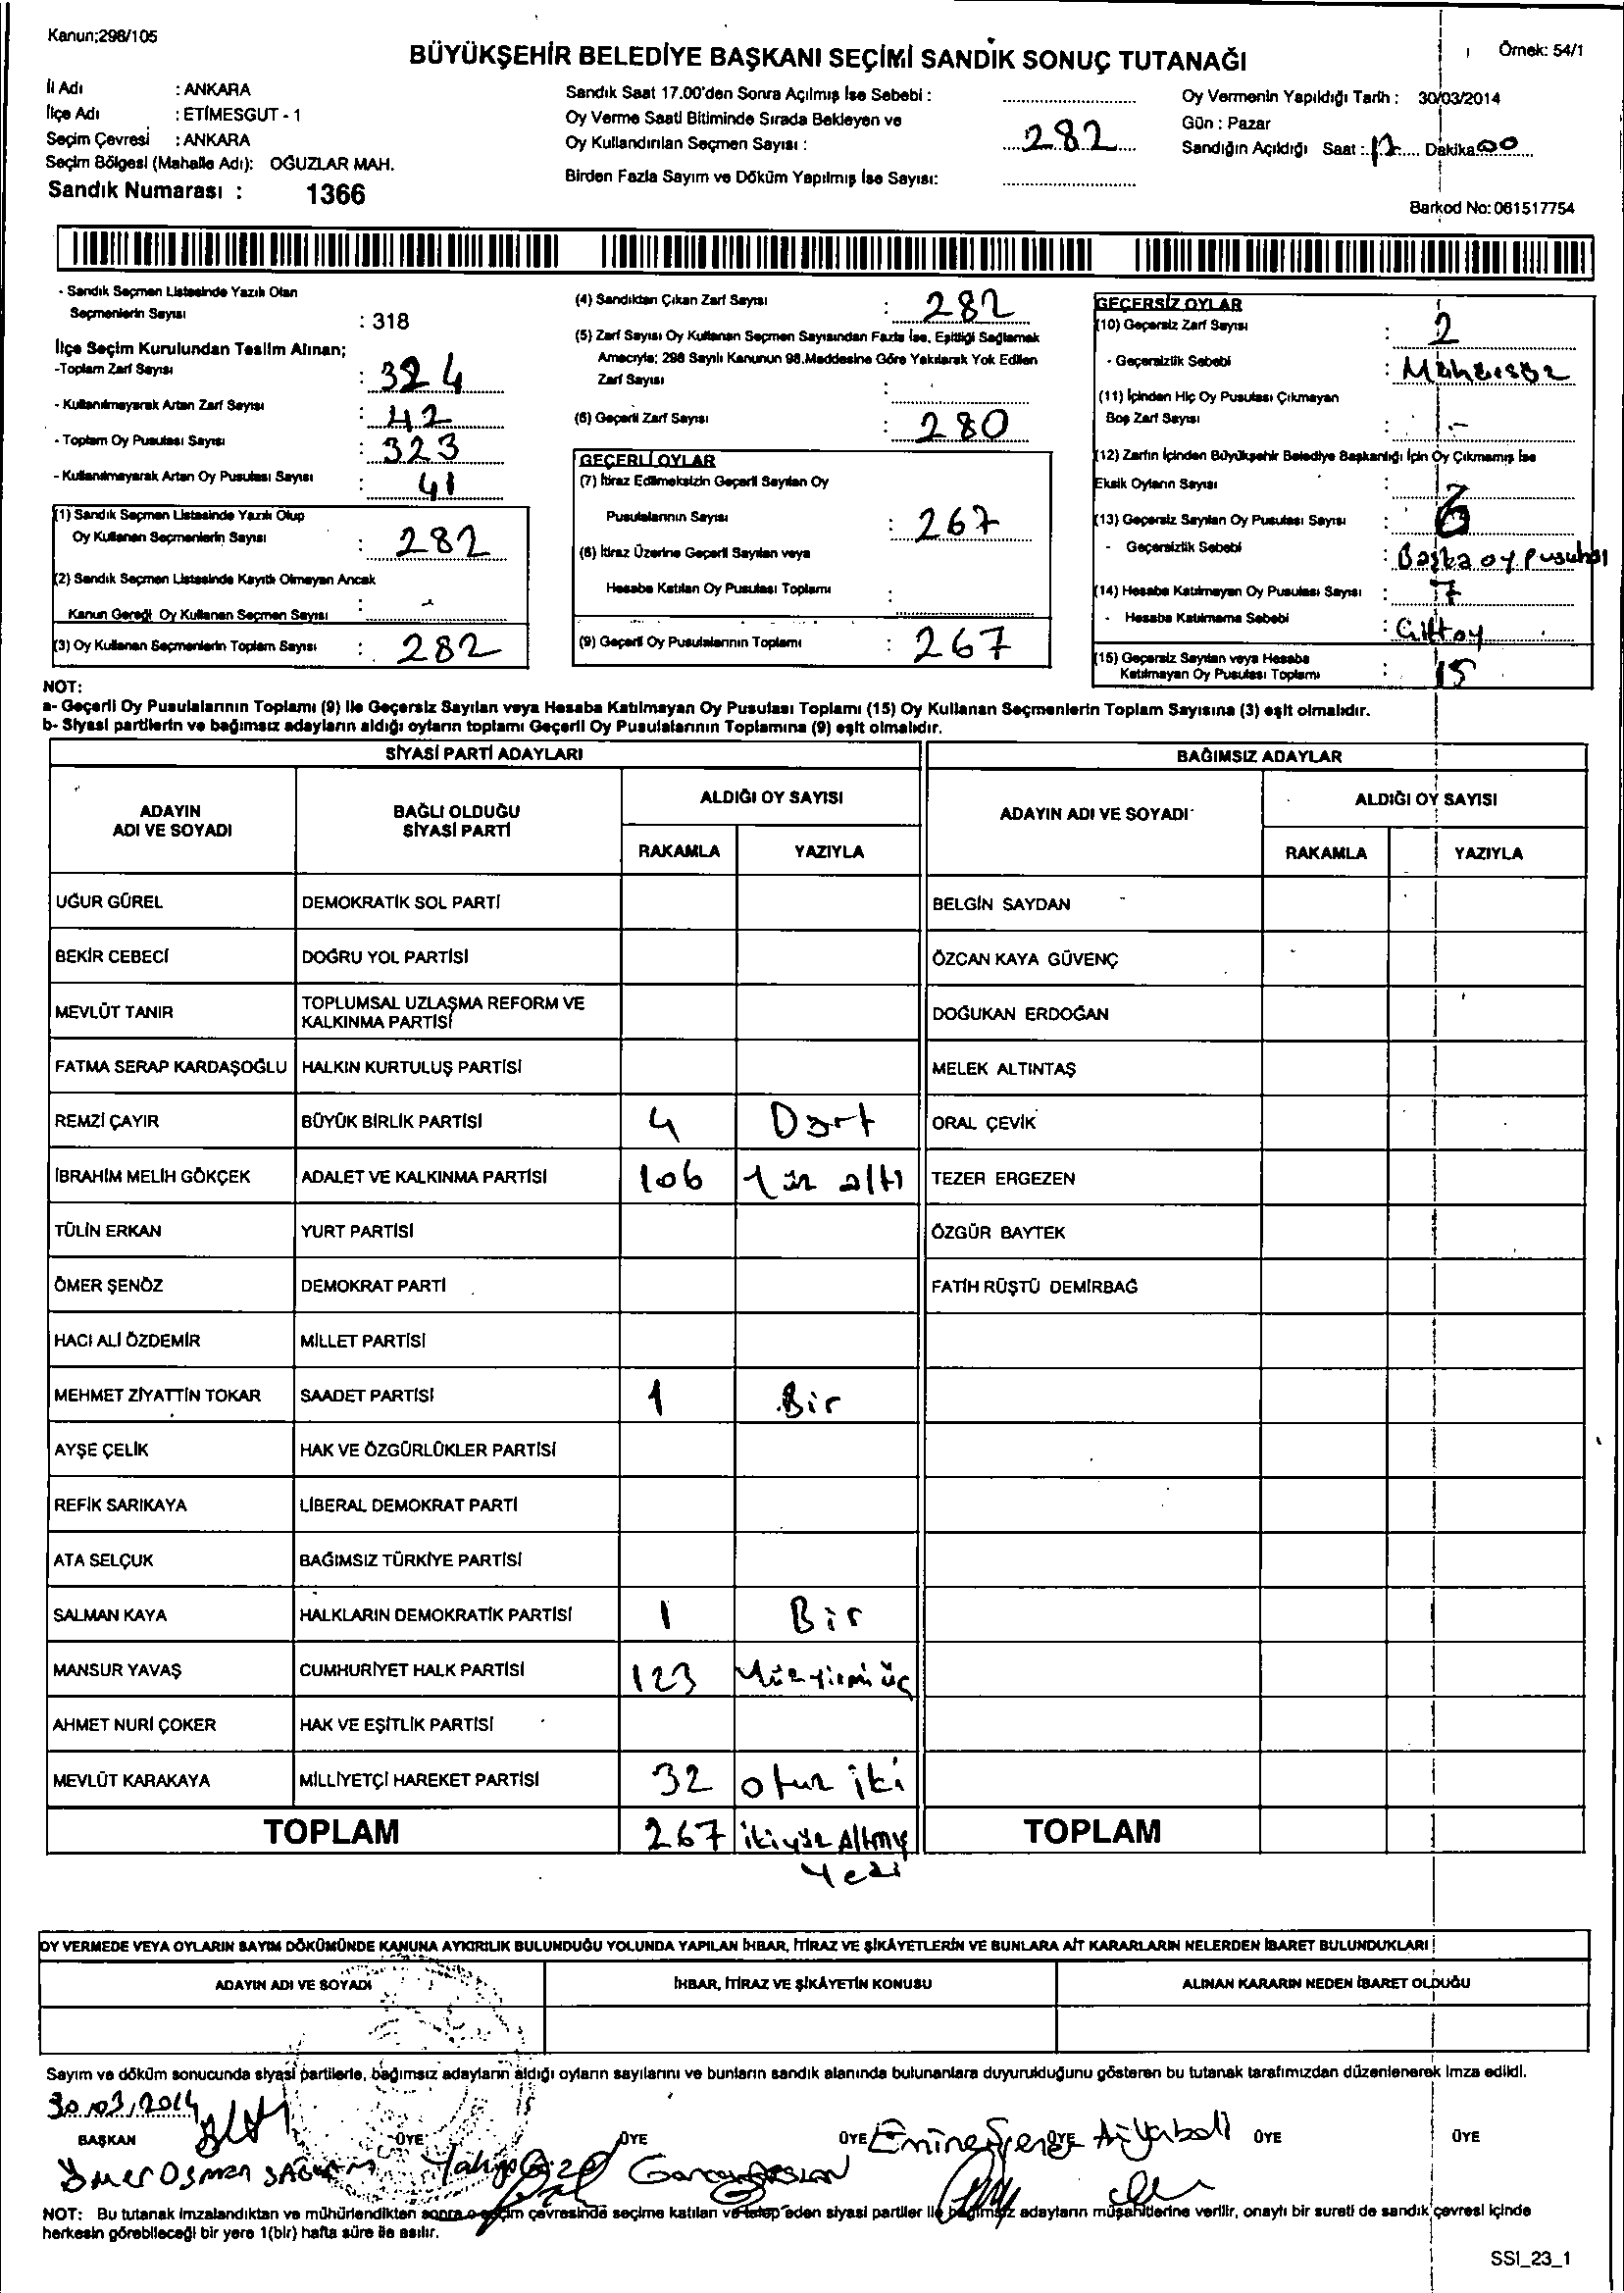 Kanun;298/105
BÜYÜKŞEHİR BELEDİYE BAŞKANI SEÇİMİ SANDIK SONUÇ TUTANAĞI
Örnek: 54/1
İl Adı : ANKARA
İlçe Adı : ETİMESGUT - 1
Seçim Çevresi : ANKARA
Seçim Bölgesi (Mahalle Adı): OĞUZLAR MAH.
Sandık Numarası : 1366
Sandık Saat 17.00'den Sonra Açılmış İse Sebebi :
Oy Verme Saati Bitiminde Sırada Bekleyen ve
Oy Kullandırılan Seçmen Sayısı : 282
Birden Fazla Sayım ve Döküm Yapılmış İse Sayısı:
Oy Vermenin Yapıldığı Tarih : 30/03/2014
Gün : Pazar
Sandığın Açıldığı Saat : 17 Dakika 00
Barkod No: 061517754
- Sandık Seçmen Listesinde Yazılı Olan
Seçmenlerin Sayısı : 318
İlçe Seçim Kurulundan Teslim Alınan;
-Toplam Zarf Sayısı : 324
- Kullanılmayarak Artan Zarf Sayısı : 42
- Toplam Oy Pusulası Sayısı : 323
- Kullanılmayarak Artan Oy Pusulası Sayısı : 41
(1) Sandık Seçmen Listesinde Yazılı Olup
Oy Kullanan Seçmenlerin Sayısı : 282
(2) Sandık Seçmen Listesinde Kayıtlı Olmayan Ancak
Kanun Gereği Oy Kullanan Seçmen Sayısı : -
(3) Oy Kullanan Seçmenlerin Toplam Sayısı : 282
(4) Sandıktan Çıkan Zarf Sayısı : 282
(5) Zarf Sayısı Oy Kullanan Seçmen Sayısından Fazla İse, Eşitliği Sağlamak
Amacıyla; 298 Sayılı Kanunun 98.Maddesine Göre Yakılarak Yok Edilen
Zarf Sayısı :
(6) Geçerli Zarf Sayısı : 280
GEÇERLİ OYLAR
(7) İtiraz Edilmeksizin Geçerli Sayılan Oy
Pusulalarının Sayısı : 267
(8) İtiraz Üzerine Geçerli Sayılan veya
Hesaba Katılan Oy Pusulası Toplamı :
(9) Geçerli Oy Pusulalarının Toplamı : 267
GEÇERSİZ OYLAR
(10) Geçersiz Zarf Sayısı : 2
- Geçersizlik Sebebi : Mühürsüz
(11) İçinden Hiç Oy Pusulası Çıkmayan
Boş Zarf Sayısı : -
(12) Zarfın İçinden Büyükşehir Belediye Başkanlığı İçin Oy Çıkmamış İse
Eksik Oyların Sayısı :
(13) Geçersiz Sayılan Oy Pusulası Sayısı : 6
- Geçersizlik Sebebi : Başka oy pusulası
(14) Hesaba Katılmayan Oy Pusulası Sayısı : 7
- Hesaba Katılmama Sebebi : Çift oy
(15) Geçersiz Sayılan veya Hesaba
Katılmayan Oy Pusulası Toplamı : 15
NOT:
a- Geçerli Oy Pusulalarının Toplamı (9) ile Geçersiz Sayılan veya Hesaba Katılmayan Oy Pusulası Toplamı (15) Oy Kullanan Seçmenlerin Toplam Sayısına (3) eşit olmalıdır.
b- Siyasi partilerin ve bağımsız adayların aldığı oyların toplamı Geçerli Oy Pusulalarının Toplamına (9) eşit olmalıdır.
SİYASİ PARTİ ADAYLARI
BAĞIMSIZ ADAYLAR
ADAYIN
ADI VE SOYADI
BAĞLI OLDUĞU
SİYASİ PARTİ
ALDIĞI OY SAYISI
RAKAMLA YAZIYLA
ADAYIN ADI VE SOYADI
ALDIĞI OY SAYISI
RAKAMLA YAZIYLA
UĞUR GÜREL DEMOKRATİK SOL PARTİ BELGİN SAYDAN
BEKİR CEBECİ DOĞRU YOL PARTİSİ ÖZCAN KAYA GÜVENÇ
MEVLÜT TANIR TOPLUMSAL UZLAŞMA REFORM VE
KALKINMA PARTİSİ DOĞUKAN ERDOĞAN
FATMA SERAP KARDAŞOĞLU HALKIN KURTULUŞ PARTİSİ MELEK ALTINTAŞ
REMZİ ÇAYIR BÜYÜK BİRLİK PARTİSİ 4 Dört ORAL ÇEVİK
İBRAHİM MELİH GÖKÇEK ADALET VE KALKINMA PARTİSİ 106 Yüz altı TEZER ERGEZEN
TÜLİN ERKAN YURT PARTİSİ ÖZGÜR BAYTEK
ÖMER ŞENÖZ DEMOKRAT PARTİ FATİH RÜŞTÜ DEMİRBAĞ
HACI ALİ ÖZDEMİR MİLLET PARTİSİ
MEHMET ZİYATTİN TOKAR SAADET PARTİSİ 1 Bir
AYŞE ÇELİK HAK VE ÖZGÜRLÜKLER PARTİSİ
REFİK SARIKAYA LİBERAL DEMOKRAT PARTİ
ATA SELÇUK BAĞIMSIZ TÜRKİYE PARTİSİ
SALMAN KAYA HALKLARIN DEMOKRATİK PARTİSİ 1 Bir
MANSUR YAVAŞ CUMHURİYET HALK PARTİSİ 123 Yüz yirmi üç
AHMET NURİ ÇOKER HAK VE EŞİTLİK PARTİSİ
MEVLÜT KARAKAYA MİLLİYETÇİ HAREKET PARTİSİ 32 otuz iki
TOPLAM 267 ikiyüz Altmış
Yedi
TOPLAM
OY VERMEDE VEYA OYLARIN SAYIM DÖKÜMÜNDE KANUNA AYKIRILIK BULUNDUĞU YOLUNDA YAPILAN İHBAR, İTİRAZ VE ŞİKÂYETLERİN VE BUNLARA AİT KARARLARIN NELERDEN İBARET BULUNDUKLARI
ADAYIN ADI VE SOYADI İHBAR, İTİRAZ VE ŞİKÂYETİN KONUSU ALINAN KARARIN NEDEN İBARET OLDUĞU
Sayım ve döküm sonucunda siyasi partilerle, bağımsız adayların aldığı oyların sayılarını ve bunların sandık alanında bulunanlara duyurulduğunu gösteren bu tutanak tarafımızdan düzenlenerek imza edildi.
30/03/2014
BAŞKAN ÜYE ÜYE ÜYE ÜYE ÜYE ÜYE
Ömer Osman Emine
NOT: Bu tutanak imzalandıktan ve mühürlendikten sonra o seçim çevresinde seçime katılan ve talep eden siyasi partiler ile bağımsız adayların müşahitlerine verilir, onaylı bir sureti de sandık çevresi içinde
herkesin görebileceği bir yere 1(bir) hafta süre ile asılır.
SSI_23_1